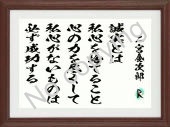 二宮金次郎
誠実とは
私心を捨てること
心の力を尽くして
私心がないものは
必ず成功する
No copying